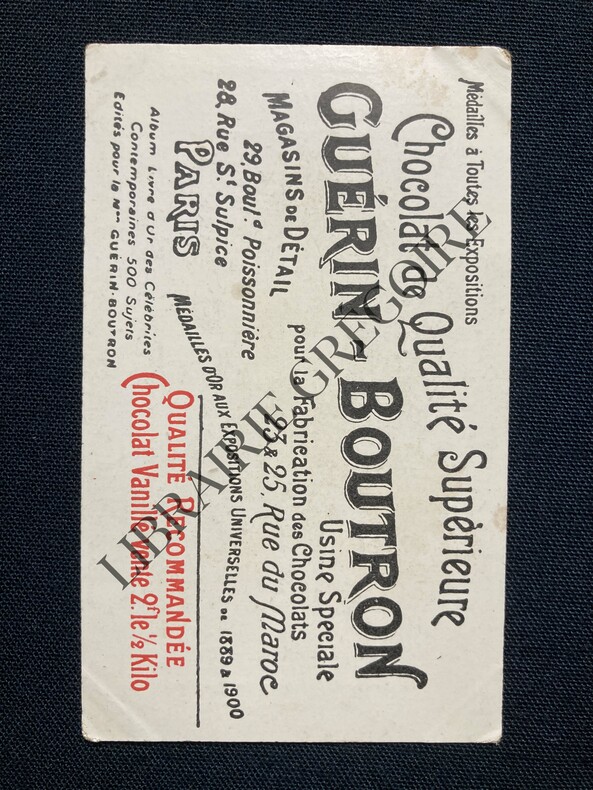 Médailles à Toutes les Expositions
Chocolat de Qualité Supérieure
GUÉRIN-BOUTRON
MAGASINS DE DÉTAIL
29, Bould Poissonnière
28, Rue St Sulpice
PARIS
Usine Speciale
pour la Fabrication des Chocolats
23 & 25, Rue du Maroc
MÉDAILLES D'OR AUX EXPOSITIONS UNIVERSELLES DE 1889 & 1900
Album Livre d'Or des Célébrités
Contemporaines 500 Sujets
Edités pour la Mon GUÉRIN-BOUTRON
QUALITÉ RECOMMANDÉE
Chocolat Vanillé vente 2f le ½ Kilo
LIBRAIRIE GREGOIRE